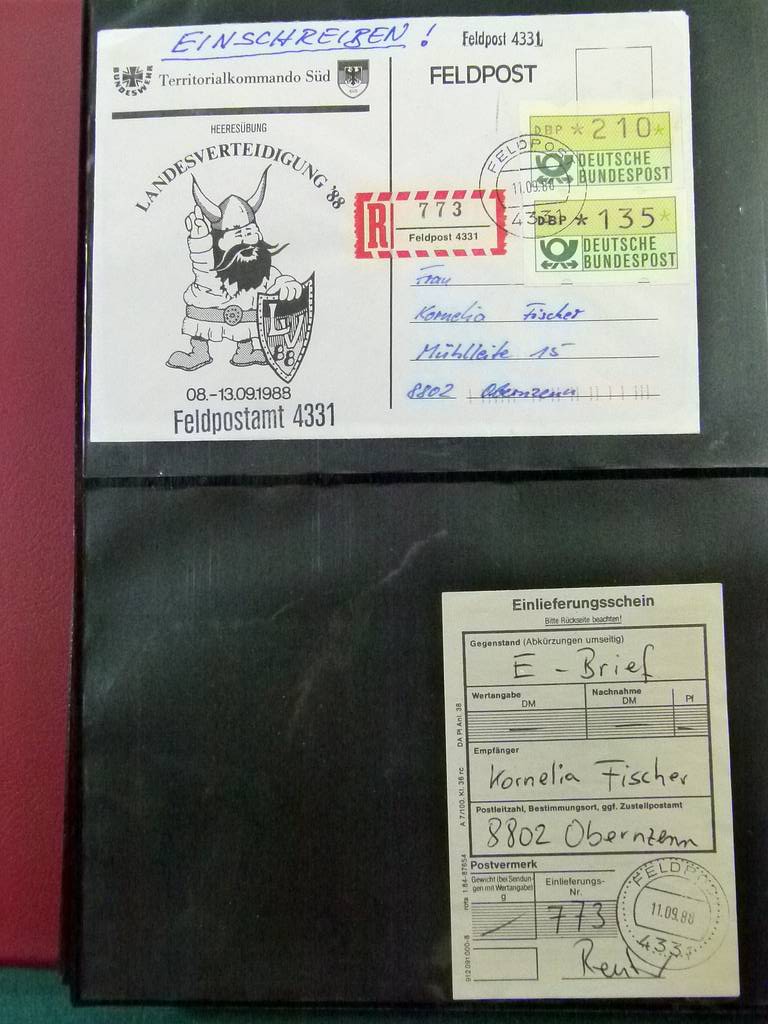 EINSCHREIBEN!
Feldpost 4331
BUNDESWEHR
Territorialkommando Süd
FELDPOST
HEERESÜBUNG
LANDESVERTEIDIGUNG '88
DBP *210*
DEUTSCHE
BUNDESPOST
FELDPOST
11.09.88
4331
DBP *135*
DEUTSCHE
BUNDESPOST
R
773
Feldpost 4331
Frau
Kornelia Fischer
Mühlleite 15
8802 Obernzenn
LV
88
08.-13.09.1988
Feldpostamt 4331
Einlieferungsschein
Bitte Rückseite beachten!
Gegenstand (Abkürzungen umseitig)
E - Brief
Wertangabe
DM
Nachnahme
DM
Pf
Empfänger
Kornelia Fischer
Postleitzahl, Bestimmungsort, ggf. Zustellpostamt
8802 Obernzenn
Postvermerk
Gewicht (bei Sendun-
gen mit Wertangabe)
g
Einlieferungs-
Nr.
773
FELDP
11.09.88
4331
912 091 000-8
rota 1.84-87654
A 7/100, Kl. 36 rc
DA PI Anl. 38